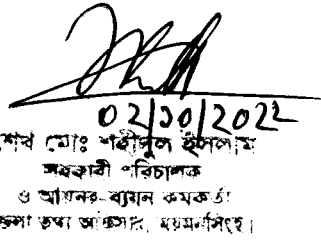 02/10/2022
শেখ মোঃ শহীদুল ইসলাম
সহকারী পরিচালক
ও আয়ন-ব্যয়ন কর্মকর্তা
জেলা তথ্য অফিস, ময়মনসিংহ।